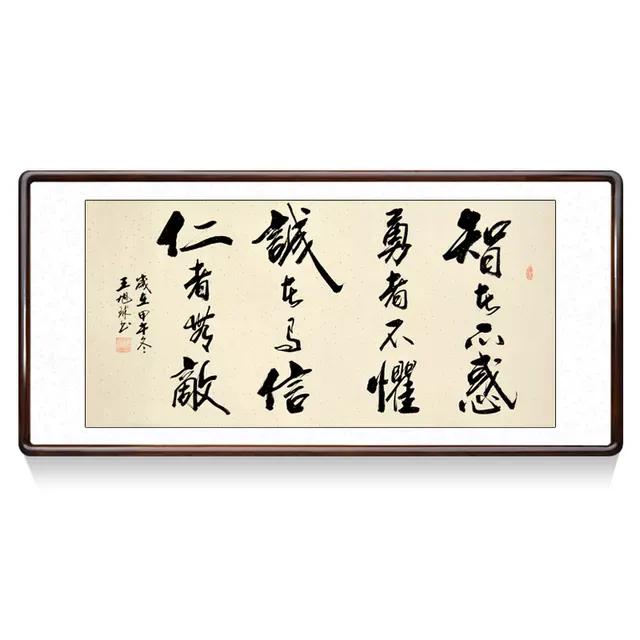 智者不惑
勇者不懼
誠者有信
仁者無敵
歲在甲午冬
王旭書